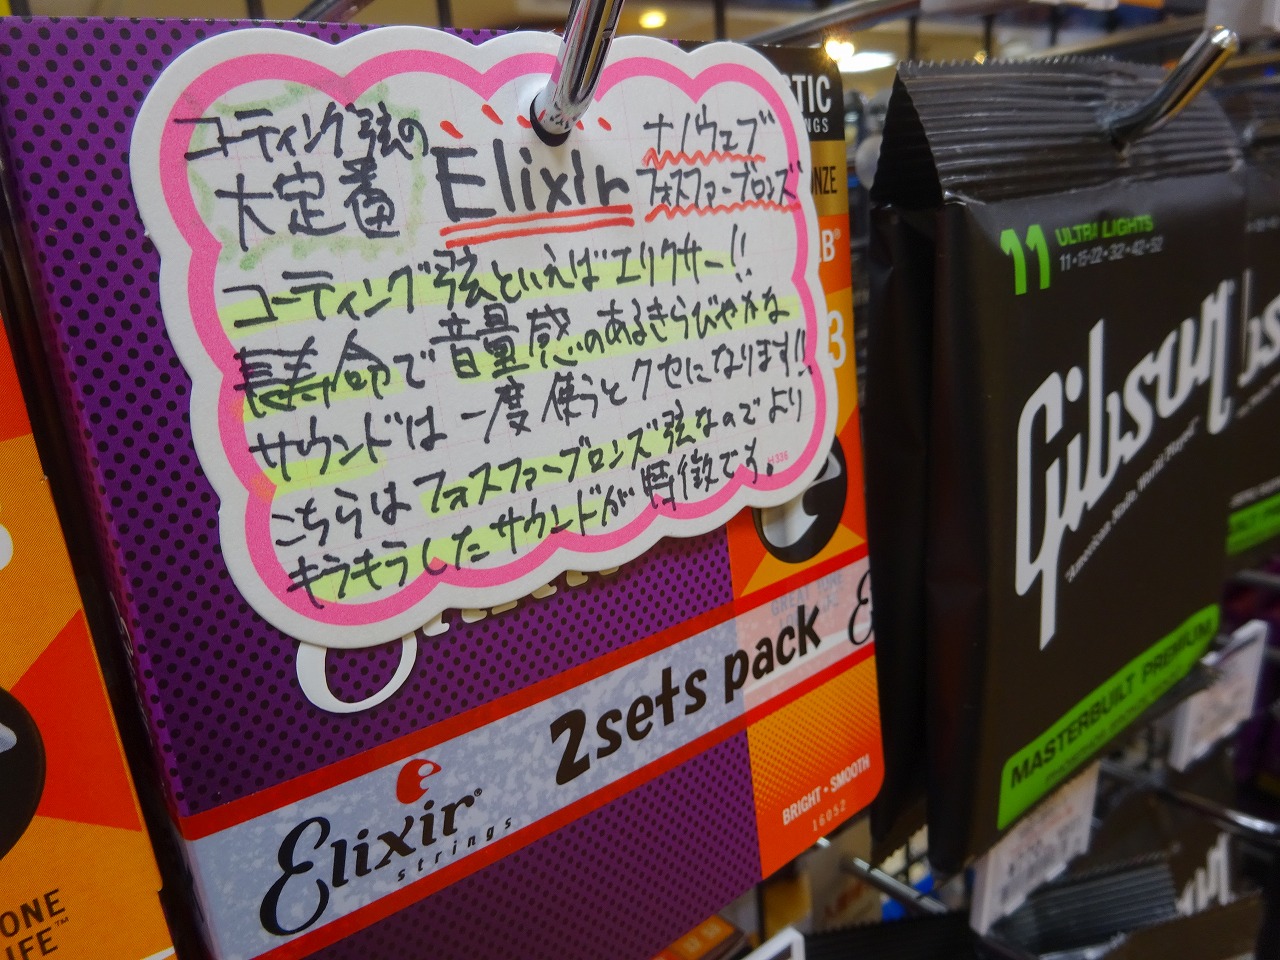 コーティング弦の
大定番
Elixir
ナノウェブ
フォスファーブロンズ
コーティング弦といえばエリクサー!!
長寿命で音量感のあるきらびやかな
サウンドは一度使うとクセになります!!
こちらはフォスファーブロンズ弦なのでより
キラキラしたサウンドが特徴です。
2sets pack
Elixir
strings
BRIGHT • SMOOTH
16052
11
ULTRA LIGHTS
11•15•22•32•42•52
Gibson
"American Made, World Played"
MASTERBUILT PREMIUM